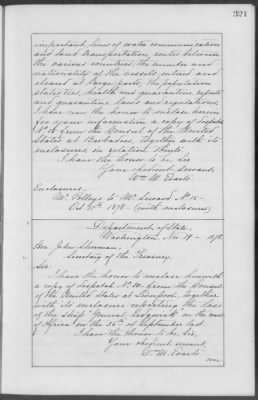 321
important lines of water communication
and land transportation, routes between
the various countries, the number and
nationality of the vessels entered and
cleared at large ports, the population
statistics, health and quarantine reports
and quarantine laws and regulations,
I have the honor to enclose herein
for your information a copy of dispatch
No. 15 from the Consul of the United
States at Barbadoes, together with its
enclosures in relation thereto.
I have the honor to be, Sir
Your obedient servant,
Wm M. Evarts
Enclosures:
Mr. to Mr. Seward No. 15 -
Oct 1878 - (with enclosures)
Department of State,
Washington, Nov 19 - 1878.
Hon. John Sherman,
Secretary of the Treasury.
Sir:
I have the honor to enclose herewith
a copy of dispatch No. 30. from the Consul
of the United States at Liverpool, together
with its enclosure regarding the loss
of the ship "General Sedgwick" on the coast
of Africa on the of September last
I have the honor to be, Sir,
Your obedient servant,
Wm. M. Evarts